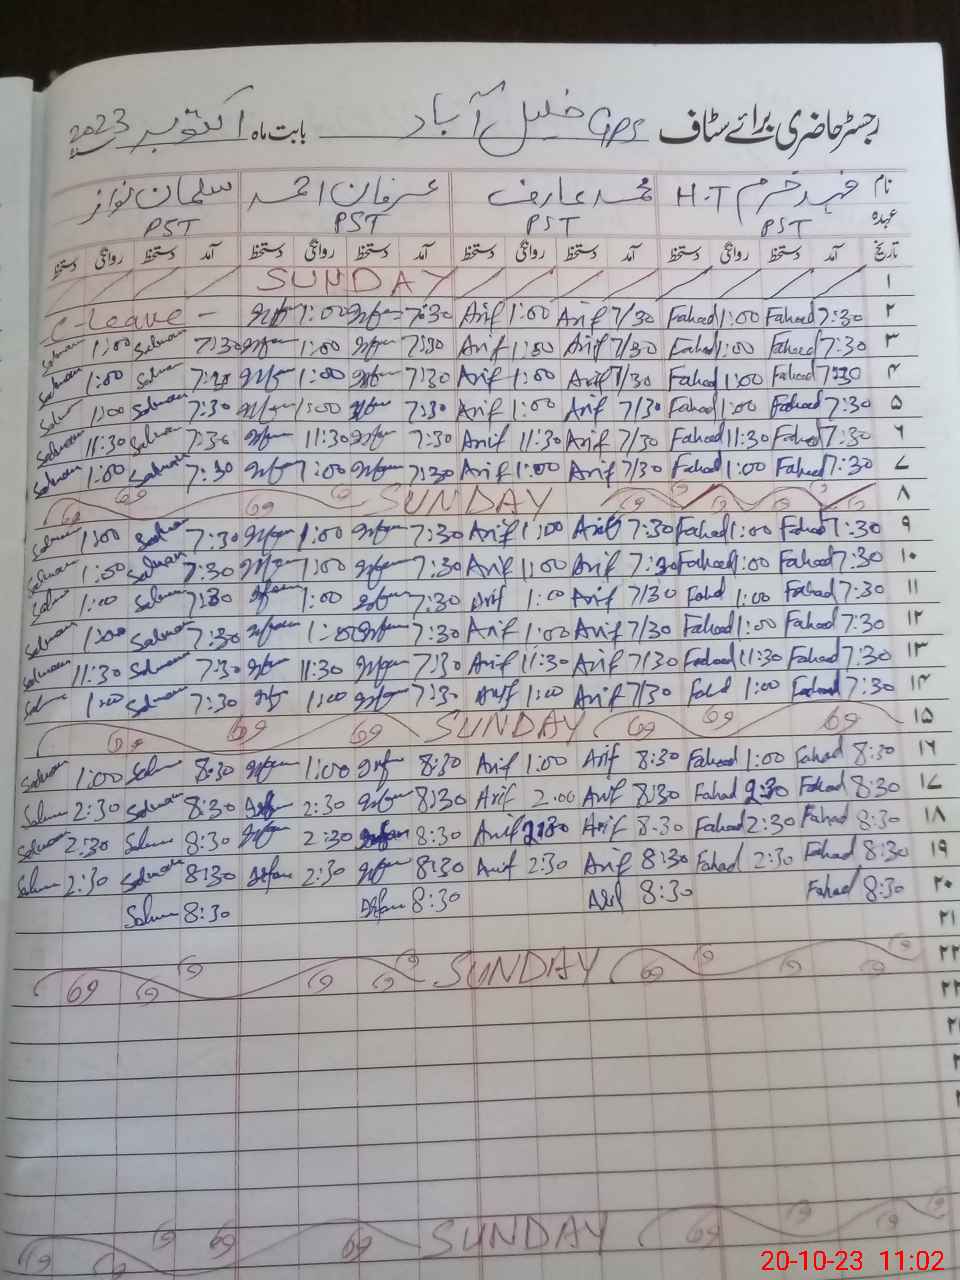 رجسٹر حاضری برائے سٹاف GPS خلیل آباد بابت ماہ اکتوبر 2023
نام فہد خرم H.T محمد عارف عرفان احمد سلمان نواز
عہدہ PST PST PST PST
تاریخ آمد دستخط روانگی دستخط آمد دستخط روانگی دستخط آمد دستخط روانگی دستخط آمد دستخط روانگی دستخط
۱ SUNDAY
۲ 7:30 Fahad 1:00 Fahad 7/30 Arif 1:00 Arif 7:30 Irfan 1:00 Irfan - C-Leave
۳ 7:30 Fahad 1:00 Fahad 7/30 Arif 1:00 Arif 7:30 Irfan 1:00 Irfan 7:30 Salman 1:00 Salman
۴ 7:30 Fahad 1:00 Fahad 7/30 Arif 1:00 Arif 7:30 Irfan 1:00 Irfan 7:30 Salman 1:00 Salman
۵ 7:30 Fahad 1:00 Fahad 7/30 Arif 1:00 Arif 7:30 Irfan 1:00 Irfan 7:30 Salman 1:00 Salman
۶ 7:30 Fahad 11:30 Fahad 7/30 Arif 11:30 Arif 7:30 Irfan 11:30 Irfan 7:30 Salman 11:30 Salman
۷ 7:30 Fahad 1:00 Fahad 7/30 Arif 1:00 Arif 7:30 Irfan 1:00 Irfan 7:30 Salman 1:00 Salman
۸ SUNDAY
۹ 7:30 Fahad 1:00 Fahad 7:30 Arif 1:00 Arif 7:30 Irfan 1:00 Irfan 7:30 Salman 1:00 Salman
۱۰ 7:30 Fahad 1:00 Fahad 7:30 Arif 1:00 Arif 7:30 Irfan 1:00 Irfan 7:30 Salman 1:00 Salman
۱۱ 7:30 Fahad 1:00 Fahd 7/30 Arif 1:00 Arif 7:30 Irfan 1:00 Irfan 7:30 Salman 1:00 Salman
۱۲ 7:30 Fahad 1:00 Fahad 7/30 Arif 1:00 Arif 7:30 Irfan 1:00 Irfan 7:30 Salman 1:00 Salman
۱۳ 7:30 Fahad 11:30 Fahad 7/30 Arif 11:30 Arif 7:30 Irfan 11:30 Irfan 7:30 Salman 11:30 Salman
۱۴ 7:30 Fahad 1:00 Fahd 7/30 Arif 1:00 Arif 7:30 Irfan 1:00 Irfan 7:30 Salman 1:00 Salman
۱۵ SUNDAY
۱۶ 8:30 Fahad 1:00 Fahad 8:30 Arif 1:00 Arif 8:30 Irfan 1:00 Irfan 8:30 Salman 1:00 Salman
۱۷ 8:30 Fahad 2:30 Fahad 8:30 Arif 2:00 Arif 8:30 Irfan 2:30 Irfan 8:30 Salman 2:30 Salman
۱۸ 8:30 Fahad 2:30 Fahad 8:30 Arif 2:30 Arif 8:30 Irfan 2:30 Irfan 8:30 Salman 2:30 Salman
۱۹ 8:30 Fahad 2:30 Fahad 8:30 Arif 2:30 Arif 8:30 Irfan 2:30 Irfan 8:30 Salman 2:30 Salman
۲۰ 8:30 Fahad 8:30 Arif 8:30 Irfan 8:30 Salman
۲۱
۲۲ SUNDAY
۲۳
SUNDAY
20-10-23 11:02